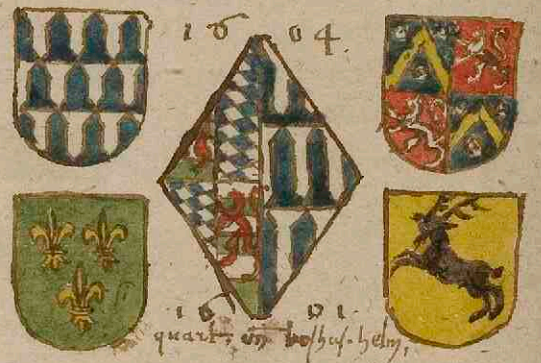 1604.
1601.
quart, vñ boshus. helm,